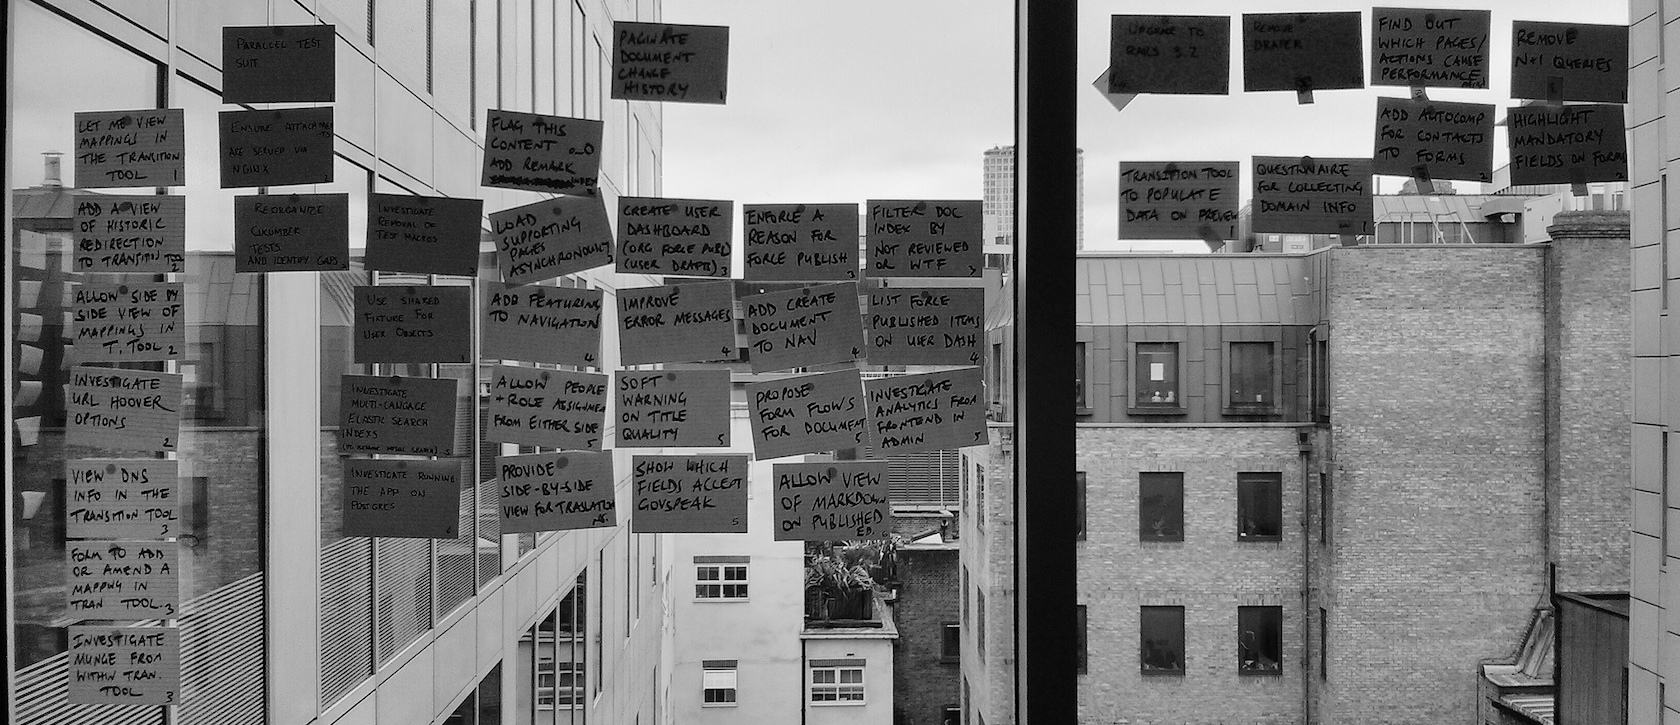 PARALLEL TEST
SUIT
PAGINATE
DOCUMENT
CHANGE
HISTORY
1
LET ME VIEW
MAPPINGS IN
THE TRANSITION
TOOL 1
ENSURE ATTACHMENTS
ARE SERVED VIA
NGINX
2
FLAG THIS
CONTENT o_O
ADD REMARK
ADD A VIEW
OF HISTORIC
REDIRECTION
TO TRANSITION TOOL
2
REORGANIZE
CUCUMBER
TESTS
AND IDENTIFY GAPS
INVESTIGATE
REMOVAL OF
TEST MACROS
3
LOAD
SUPPORTING
PAGES
ASYNCHRONOUSLY
3
CREATE USER
DASHBOARD
(ORG FORCE PUBD)
(USER DRAFTS) 3
ENFORCE A
REASON FOR
FORCE PUBLISH
3
FILTER DOC
INDEX BY
NOT REVIEWED
OR WTF
ALLOW SIDE BY
SIDE VIEW OF
MAPPINGS IN
T. TOOL 2
USE SHARED
FIXTURE FOR
USER OBJECTS
1
ADD FEATURING
TO NAVIGATION
4
IMPROVE
ERROR MESSAGES
4
ADD CREATE
DOCUMENT
TO NAV
4
LIST FORCE
PUBLISHED ITEMS
ON USER DASH
4
INVESTIGATE
URL HOOVER
OPTIONS
2
INVESTIGATE
MULTI-LANGAGE
ELASTIC SEARCH
INDEXS
ALLOW PEOPLE
+ ROLE ASSIGNMEN
FROM EITHER SIDE
5
SOFT
WARNING
ON TITLE
QUALITY
5
PROPOSE
FORM FLOWS
FOR DOCUMENT
5
INVESTIGATE
ANALYTICS FROM
FRONTEND IN
ADMIN
5
VIEW DNS
INFO IN THE
TRANSITION TOOL
3
INVESTIGATE RUNNING
THE APP ON
POSTGRES
PROVIDE
SIDE-BY-SIDE
VIEW FOR TRASLATION
SHOW WHICH
FIELDS ACCEPT
GOVSPEAK
5
ALLOW VIEW
OF MARKDOWN
ON PUBLISHED
ED.
FORM TO ADD
OR AMEND A
MAPPING IN
TRAN TOOL. 3
INVESTIGATE
MUNGE FROM
WITHIN TRAN.
TOOL 3
UPGRADE TO
RAILS 3.2
REMOVE
DRAPER
FIND OUT
WHICH PAGES/
ACTIONS CAUSE
PERFORMANCE
REMOVE
N+1 QUERIES
1
ADD AUTOCOMP
FOR CONTACTS
TO FORMS
2
HIGHLIGHT
MANDATORY
FIELDS ON FORMS
2
TRANSITION TOOL
TO POPULATE
DATA ON PREVIEW
1
QUESTIONNAIRE
FOR COLLECTING
DOMAIN INFO
1